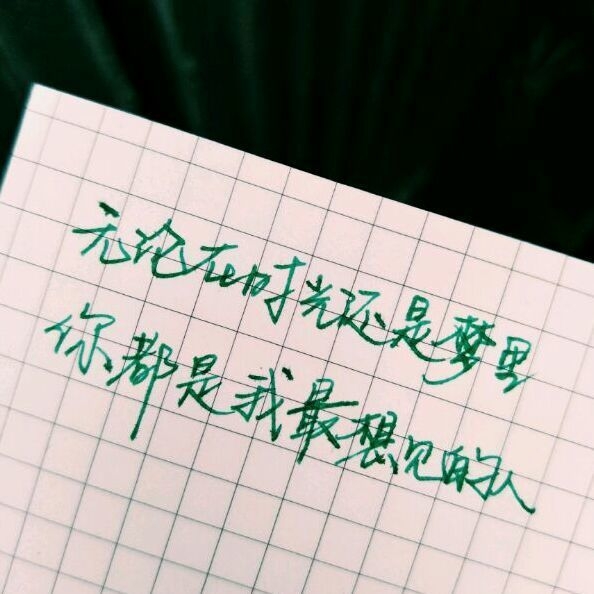 无论在时光还是梦里
你都是我最想见的人